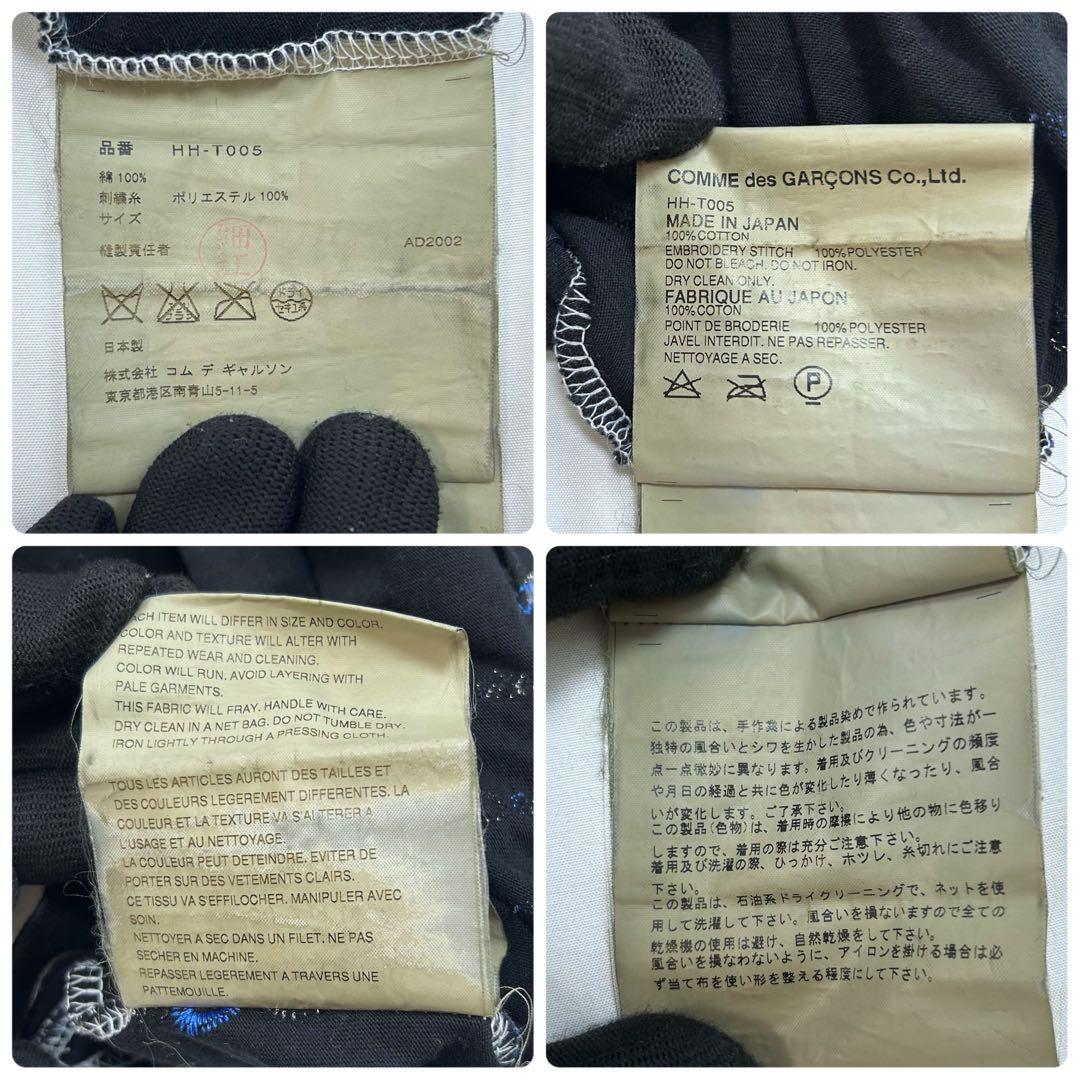 品番 HH-T005
綿 100%
刺繍糸 ポリエステル 100%
サイズ
縫製責任者
AD2002
ドライ
セキユ系
日本製
株式会社 コム デ ギャルソン
東京都港区南青山5-11-5
COMME des GARÇONS Co.,Ltd.
HH-T005
MADE IN JAPAN
100% COTTON
EMBROIDERY STITCH 100% POLYESTER
DO NOT BLEACH. DO NOT IRON.
DRY CLEAN ONLY.
FABRIQUE AU JAPON
100% COTON
POINT DE BRODERIE 100% POLYESTER
JAVEL INTERDIT. NE PAS REPASSER.
NETTOYAGE A SEC.
P
EACH ITEM WILL DIFFER IN SIZE AND COLOR.
COLOR AND TEXTURE WILL ALTER WITH
REPEATED WEAR AND CLEANING.
COLOR WILL RUN. AVOID LAYERING WITH
PALE GARMENTS.
THIS FABRIC WILL FRAY. HANDLE WITH CARE.
DRY CLEAN IN A NET BAG. DO NOT TUMBLE DRY.
IRON LIGHTLY THROUGH A PRESSING CLOTH.
TOUS LES ARTICLES AURONT DES TAILLES ET
DES COULEURS LEGEREMENT DIFFERENTES. LA
COULEUR ET LA TEXTURE VA S'ALTERER A
L'USAGE ET AU NETTOYAGE.
LA COULEUR PEUT DETEINDRE. EVITER DE
PORTER SUR DES VETEMENTS CLAIRS.
CE TISSU VA S'EFFILOCHER. MANIPULER AVEC
SOIN.
NETTOYER A SEC DANS UN FILET. NE PAS
SECHER EN MACHINE.
REPASSER LEGEREMENT A TRAVERS UNE
PATTEMOUILLE.
この製品は、手作業による製品染めで作られています。
独特の風合いとシワを生かした製品の為、色や寸法が一
点一点微妙に異なります。着用及びクリーニングの頻度
や月日の経過と共に色が変化したり薄くなったり、風合
いが変化します。ご了承下さい。
この製品(色物)は、着用時の摩擦により他の物に色移り
しますので、着用の際は充分ご注意下さい。
着用及び洗濯の際、ひっかけ、ホツレ、糸切れにご注意
下さい。
この製品は、石油系ドライクリーニングで、ネットを使
用して洗濯して下さい。風合いを損ないますので全ての
乾燥機の使用は避け、自然乾燥をして下さい。
風合いを損なわないように、アイロンを掛ける場合は必
ず当て布を使い形を整える程度にして下さい。